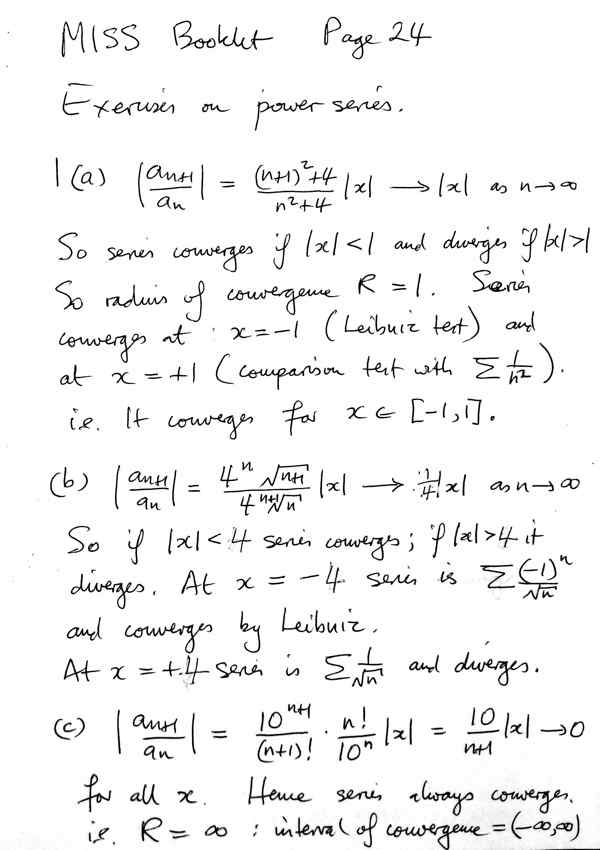 MISS Booklet Page 24
Exercises on power series.
1 (a) |aₙ₊₁/aₙ| = ((n+1)²+4)/(n²+4) |x| → |x| as n→∞
So series converges if |x|<1 and diverges if |x|>1
So radius of convergence R = 1. Series
converges at : x=-1 (Leibniz test) and
at x = +1 (comparison test with Σ 1/n²).
i.e. It converges for x ∈ [-1,1].
(b) |aₙ₊₁/aₙ| = (4ⁿ √(n+1))/(4ⁿ⁺¹ √n) |x| → 1/4 |x| as n→∞
So if |x|<4 series converges; if |x|>4 it
diverges. At x = -4 series is Σ (-1)ⁿ/√n
and converges by Leibniz.
At x = +4 series is Σ 1/√n and diverges.
(c) |aₙ₊₁/aₙ| = 10ⁿ⁺¹/(n+1)! · n!/10ⁿ |x| = 10/(n+1) |x| → 0
for all x. Hence series always converges.
i.e. R = ∞ : interval of convergence = (-∞,∞)